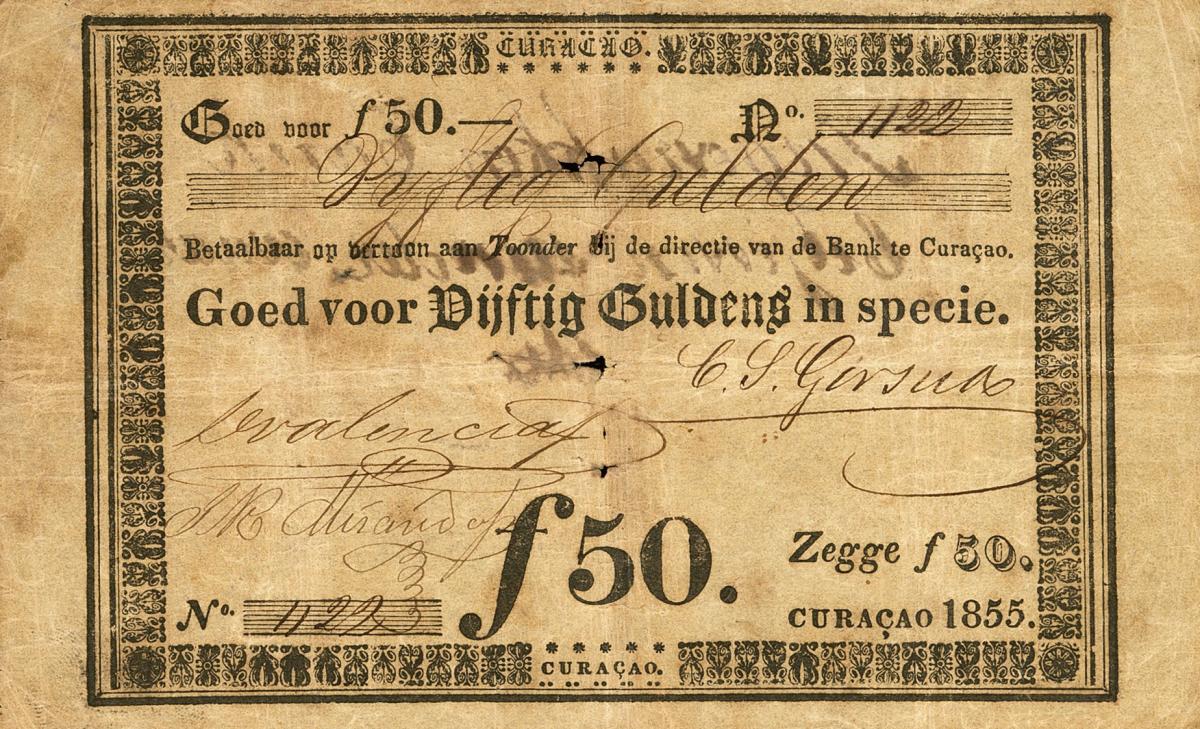 CURAÇAO.
Goed voor ƒ 50.—
No. 1122
Vyftig Gulden
Betaalbaar op vertoon aan Toonder bij de directie van de Bank te Curaçao.
Goed voor Vijftig Guldens in specie.
C. S. Gorsira
J R
ƒ 50.
Zegge ƒ 50.
No. 1122
CURAÇAO 1855.
CURAÇAO.